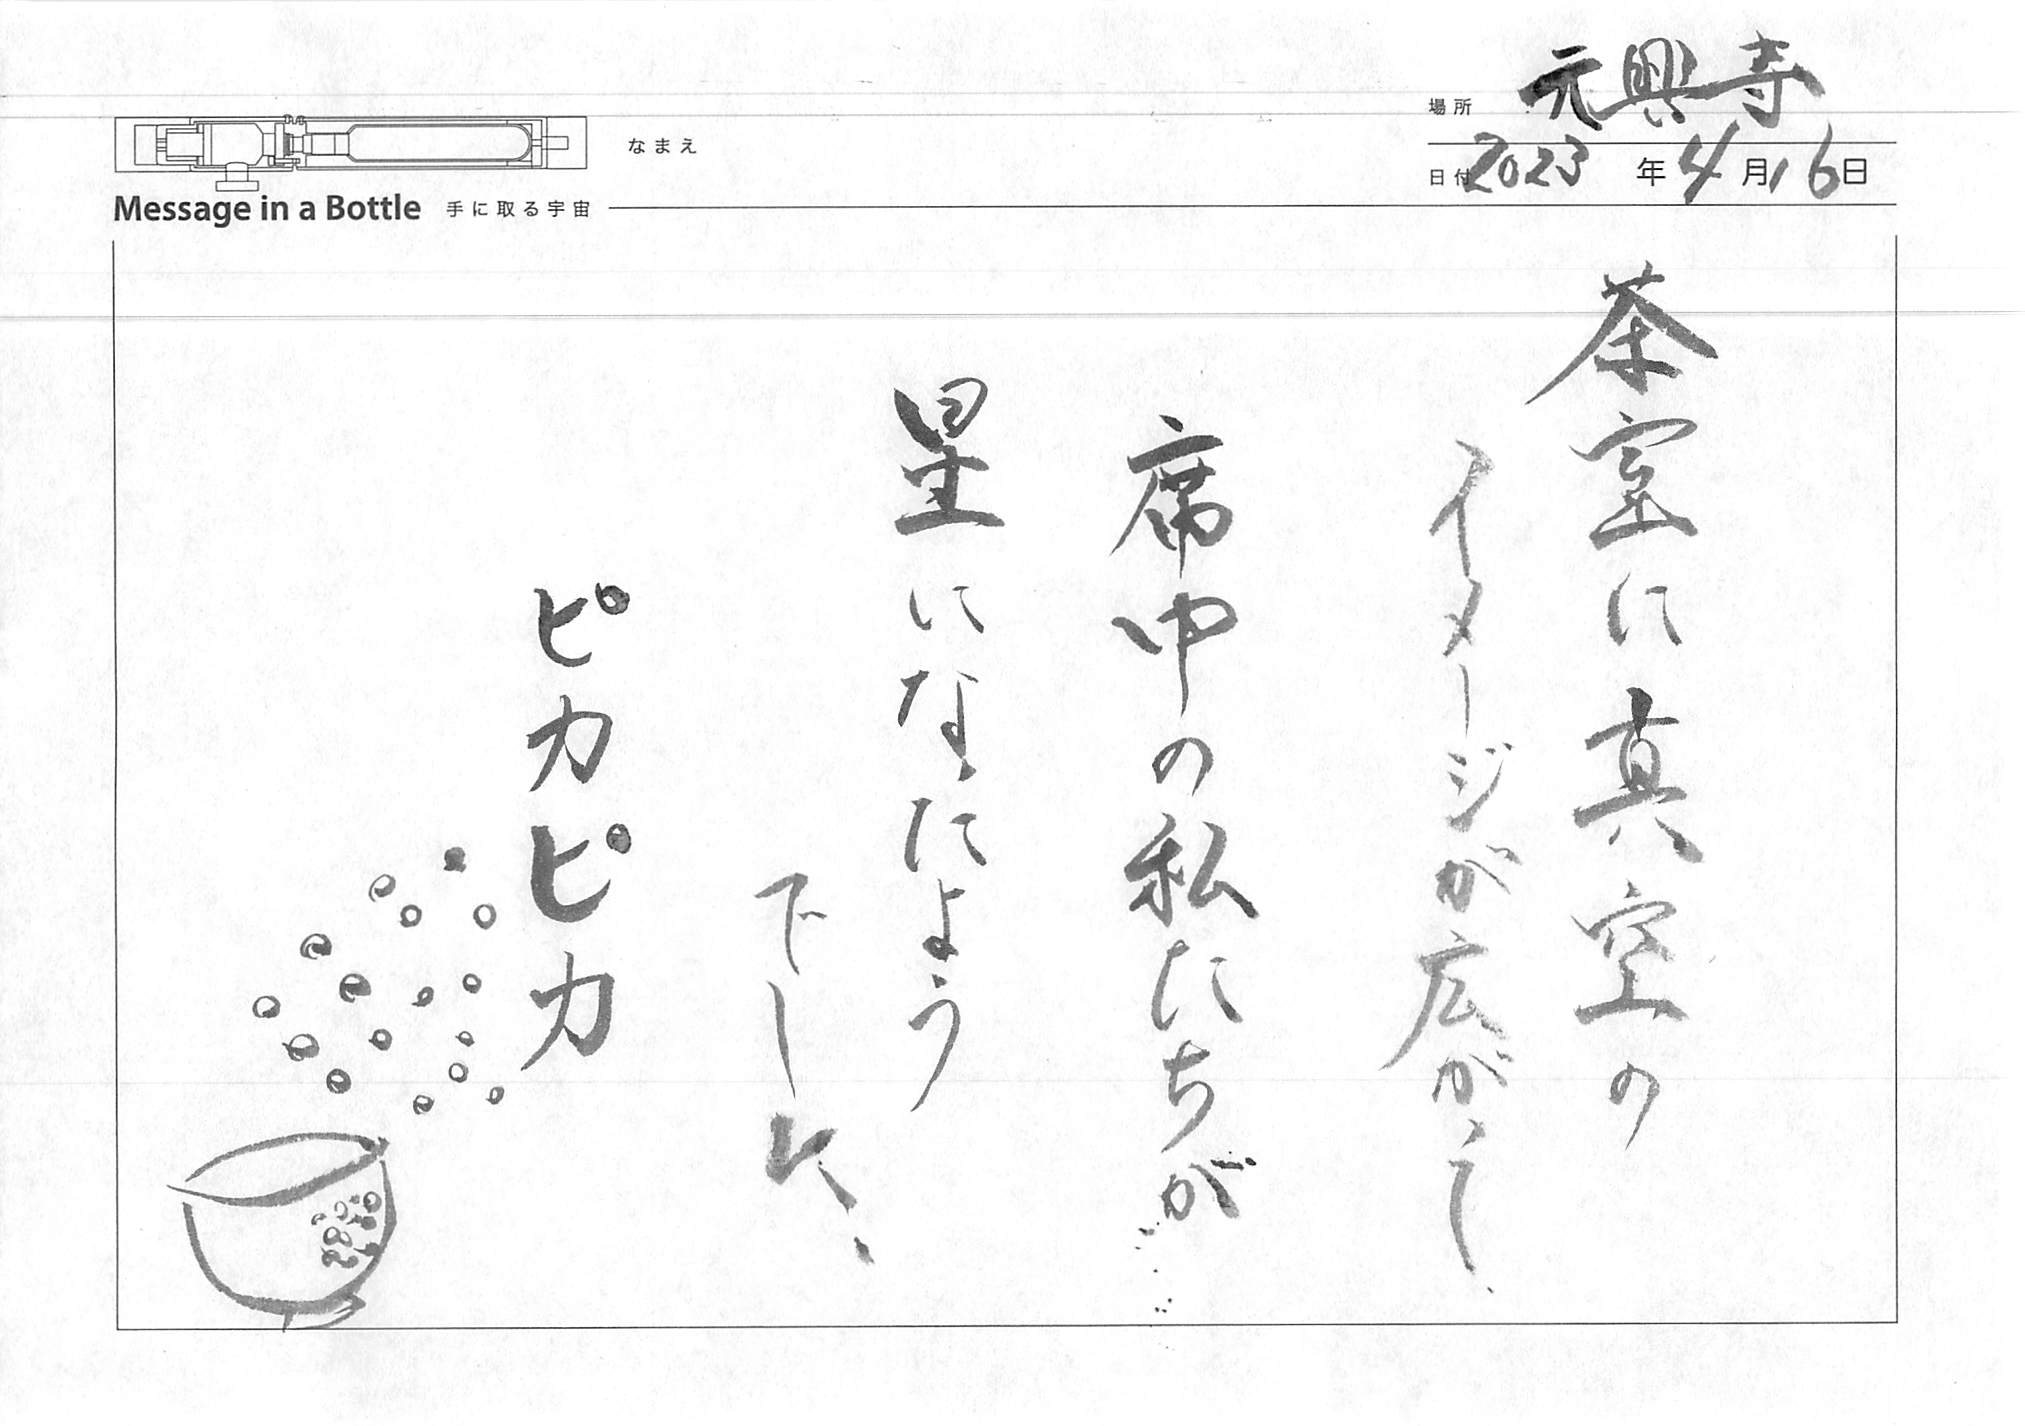 場所 元興寺
日付 2023年4月16日
なまえ
Message in a Bottle 手に取る宇宙
茶室に真空の
イメージが広がって
席中の私たちが
星になたによう
でした、
ピカピカ